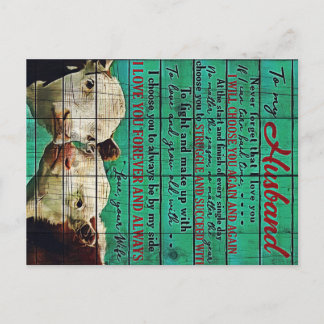 To my
Husband
Never forget that I love you
I WILL CHOOSE YOU AGAIN AND AGAIN
At the start and finish of every single day
choose you to STRUGGLE AND SUCCEED WITH
To fight and make up with
To love and grow old with
I choose you to always be by my side
I LOVE YOU FOREVER AND ALWAYS
Love, your Wife